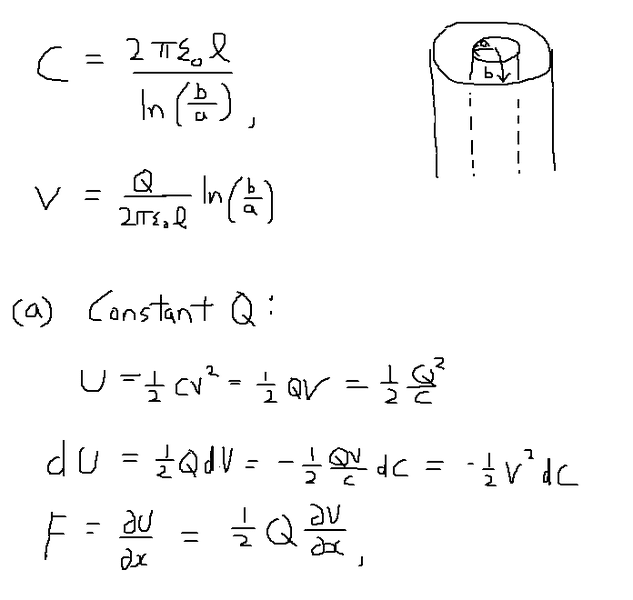 C = 2πε₀l / ln(b/a),
a
b
V = Q / 2πε₀l ln(b/a)
(a) Constant Q:
U = 1/2 CV² = 1/2 QV = 1/2 Q²/C
dU = 1/2 Q dV = -1/2 QV/C dC = -1/2 V² dC
F = ∂U/∂x = 1/2 Q ∂V/∂x,